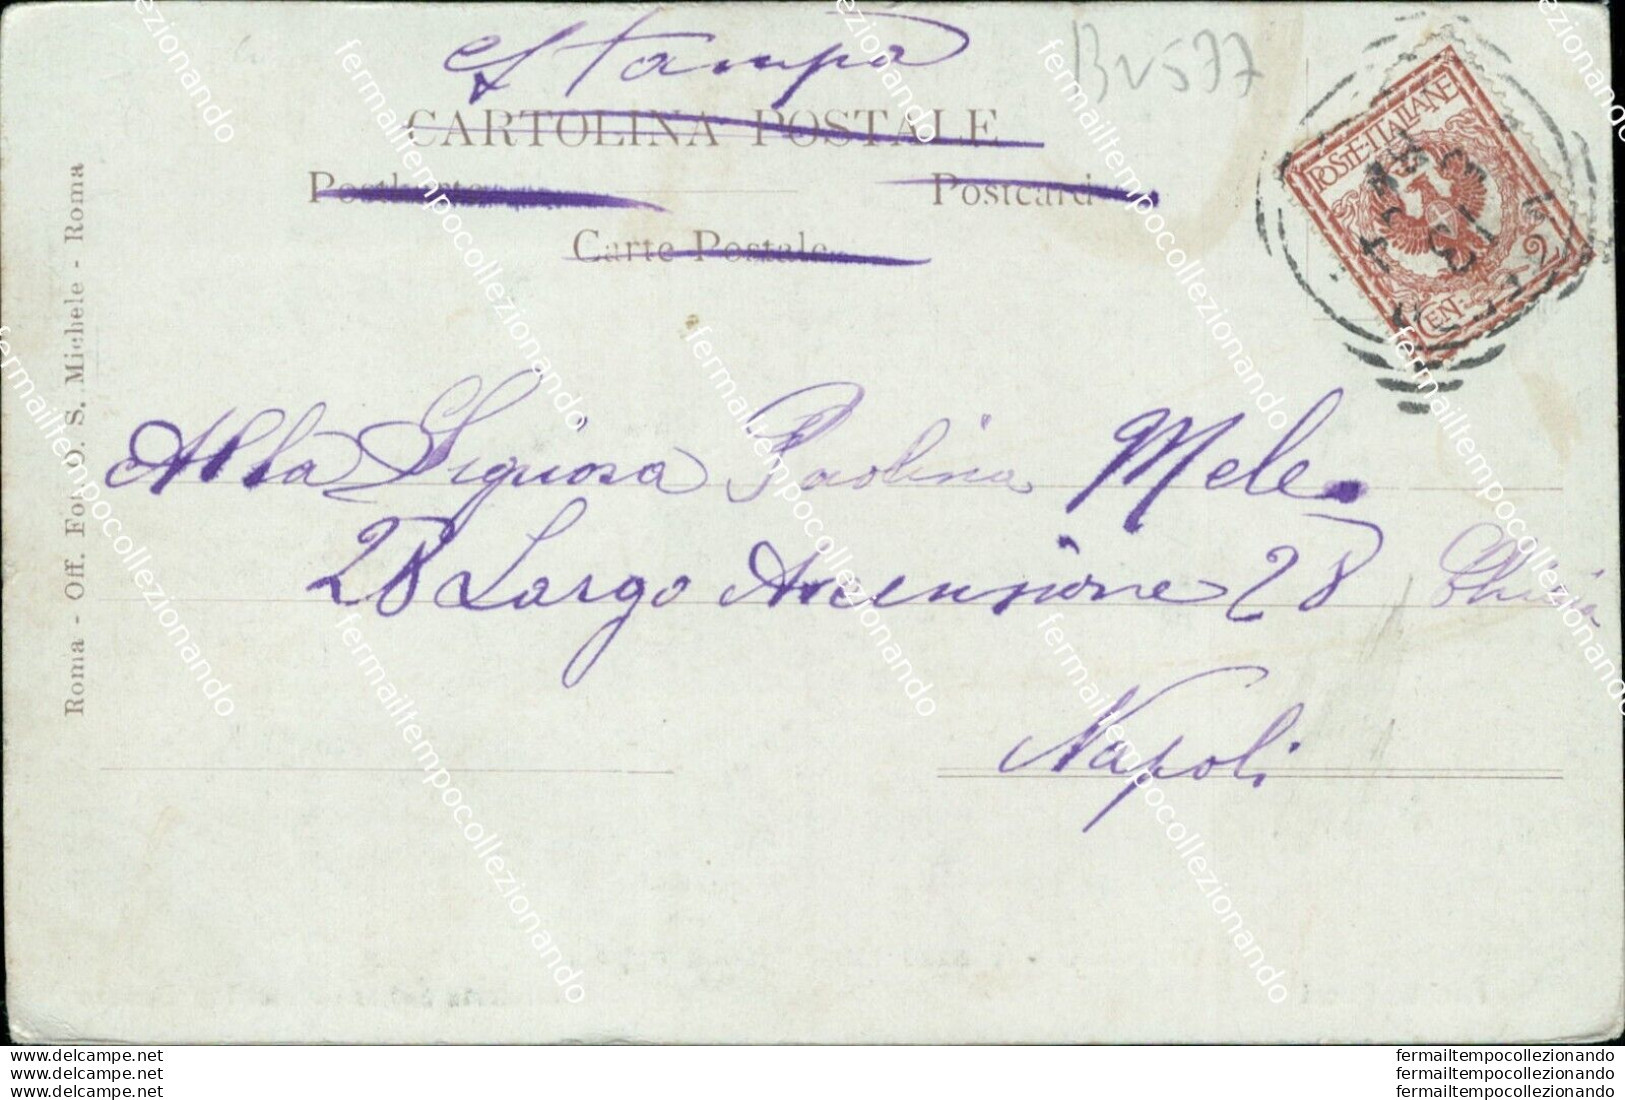 Stampa
Bv577
CARTOLINA POSTALE
Postkarte
Postcard
Carte Postale
POSTE·ITALIANE
CENT. 2
Roma - Off. Fot. O. S. Michele - Roma
Alla Signora Paolina Mele.
28 Largo Ascensione 28 Chiaia
Napoli
www.delcampe.net
www.delcampe.net
www.delcampe.net
fermailtempocollezionando
fermailtempocollezionando
fermailtempocollezionando